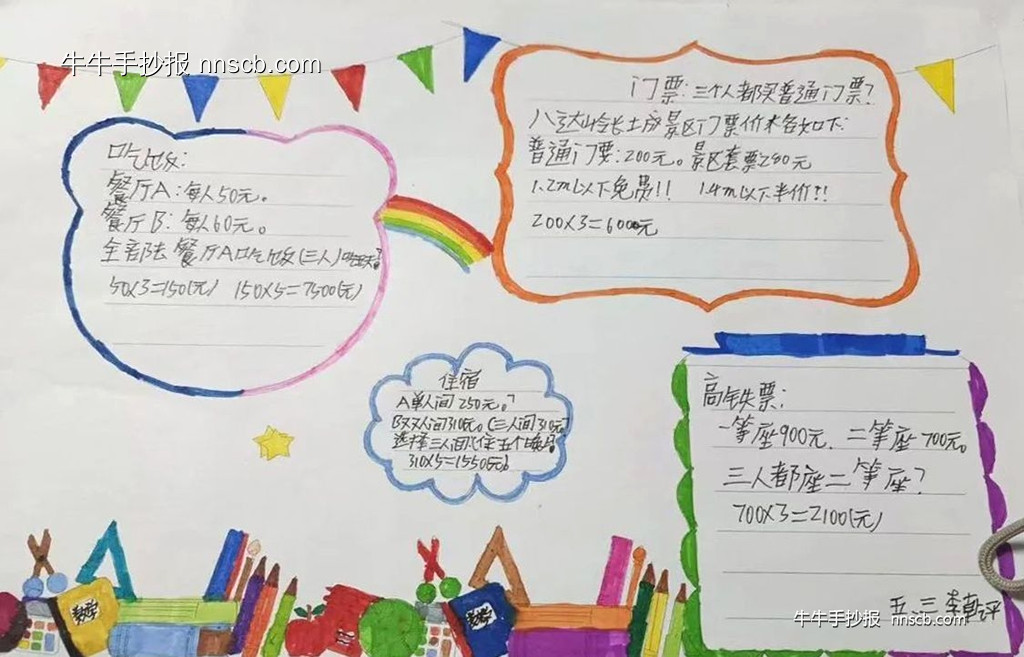 牛牛手抄报 nnscb.com
吃饭:
餐厅A:每人50元。
餐厅B:每人60元。
全部去餐厅A吃饭(三人)
50X3=150(元) 150X5=7500(元)
门票:三个人都买普通门票?
八达岭长城景区门票价格如下:
普通门票:200元。景区套票280元
1.2m以下免费!! 1.4m以下半价!!
200X3=6000元
住宿
A单人间250元。
B双人间310元。(三人间310元)
选择三人间住五个晚
310X5=1550元
高铁票:
一等座900元. 二等座700元。
三人都座二等座?
700X3=2100(元)
五.三 李
牛牛手抄报 nnscb.com
数学
数学